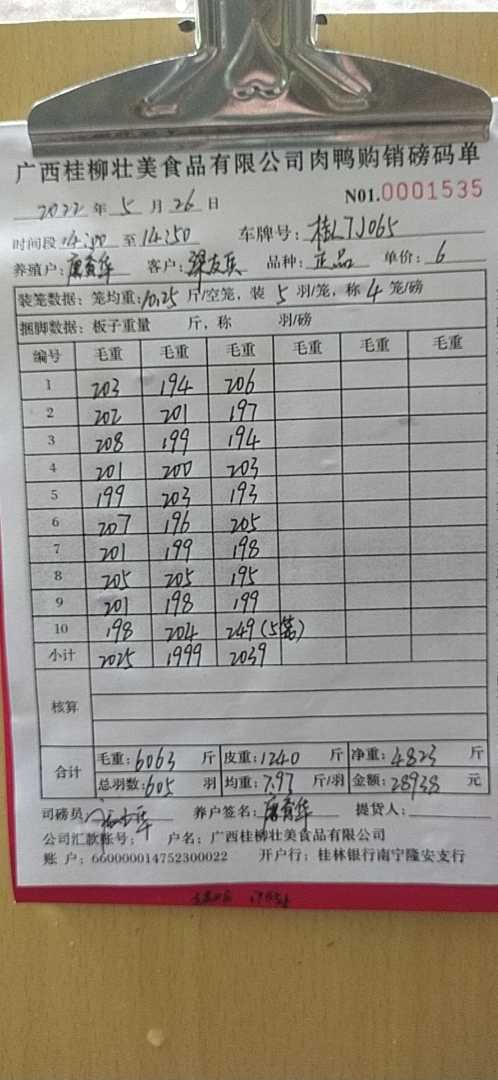 广西桂柳壮美食品有限公司肉鸭购销磅码单
2022 年 5 月 26 日 N01.0001535
时间段: 至 14:50 车牌号: 桂L7J065
养殖户: 唐育华 客户: 梁友兵 品种: 正品 单价: 6
装笼数据: 笼均重: 10.25 斤/空笼, 装 5 羽/笼, 称 4 笼/磅
捆脚数据: 板子重量 斤, 称 羽/磅
编号 毛重 毛重 毛重 毛重 毛重 毛重
1 203 194 206
2 202 201 197
3 208 199 194
4 201 200 203
5 199 203 193
6 207 196 205
7 201 199 198
8 205 205 195
9 201 198 199
10 198 204 249 (5笼)
小计 2025 1999 2039
核算
合计 毛重: 6063 斤 皮重: 1240 斤 净重: 4823 斤
总羽数: 605 羽 均重: 7.97 斤/羽 金额: 28938 元
司磅员 养户签名: 唐育华 提货人:
公司汇款账号: 户名: 广西桂柳壮美食品有限公司
账 户: 660000014752300022 开户行: 桂林银行南宁隆安支行